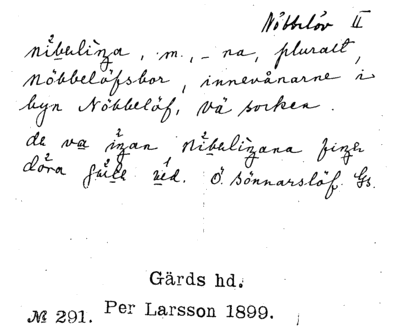 Nöbbelöv II
nibelinga, m., -na, pluralt,
Nöbbelöfsbor, innevånarne i
byn Nöbbelöf, Vä socken.
de va ingan nibelingana finge
döra
Ö. Sönnarslöf. Gs.
Gärds hd.
№ 291. Per Larsson 1899.